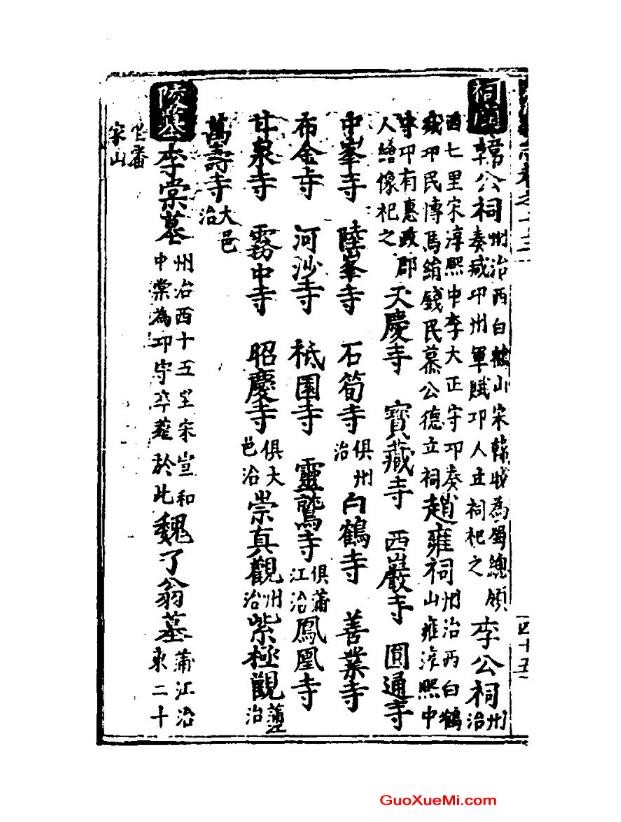 祠廟 韓公祠 州治西白鶴山宋韓 為蜀總領奏減卭州軍賦卭人立祠祀之 李公祠 州治
西七里宋淳熙中李大正守卭奏減卭民博馬絹錢民慕公德立祠 趙雍祠 州治西白鶴山雍淳熙中
守卭有惠政郡人繪像祀之 天慶寺 寶藏寺 西巖寺 圓通寺
中峯寺 陸峯寺 石筍寺 俱州治 白鶴寺 善業寺
布金寺 河沙寺 秪園寺 靈鷲寺 俱蒲江治 鳳凰寺
甘泉寺 霧中寺 昭慶寺 俱大邑治 崇真觀 州治 紫極觀 蒲江治
萬壽寺 大邑治
陵墓 李棠墓 州治西十五里宋宣和中棠為卭守卒葬於此 魏了翁墓 蒲江治東二十
四十五
GuoXueMi.com